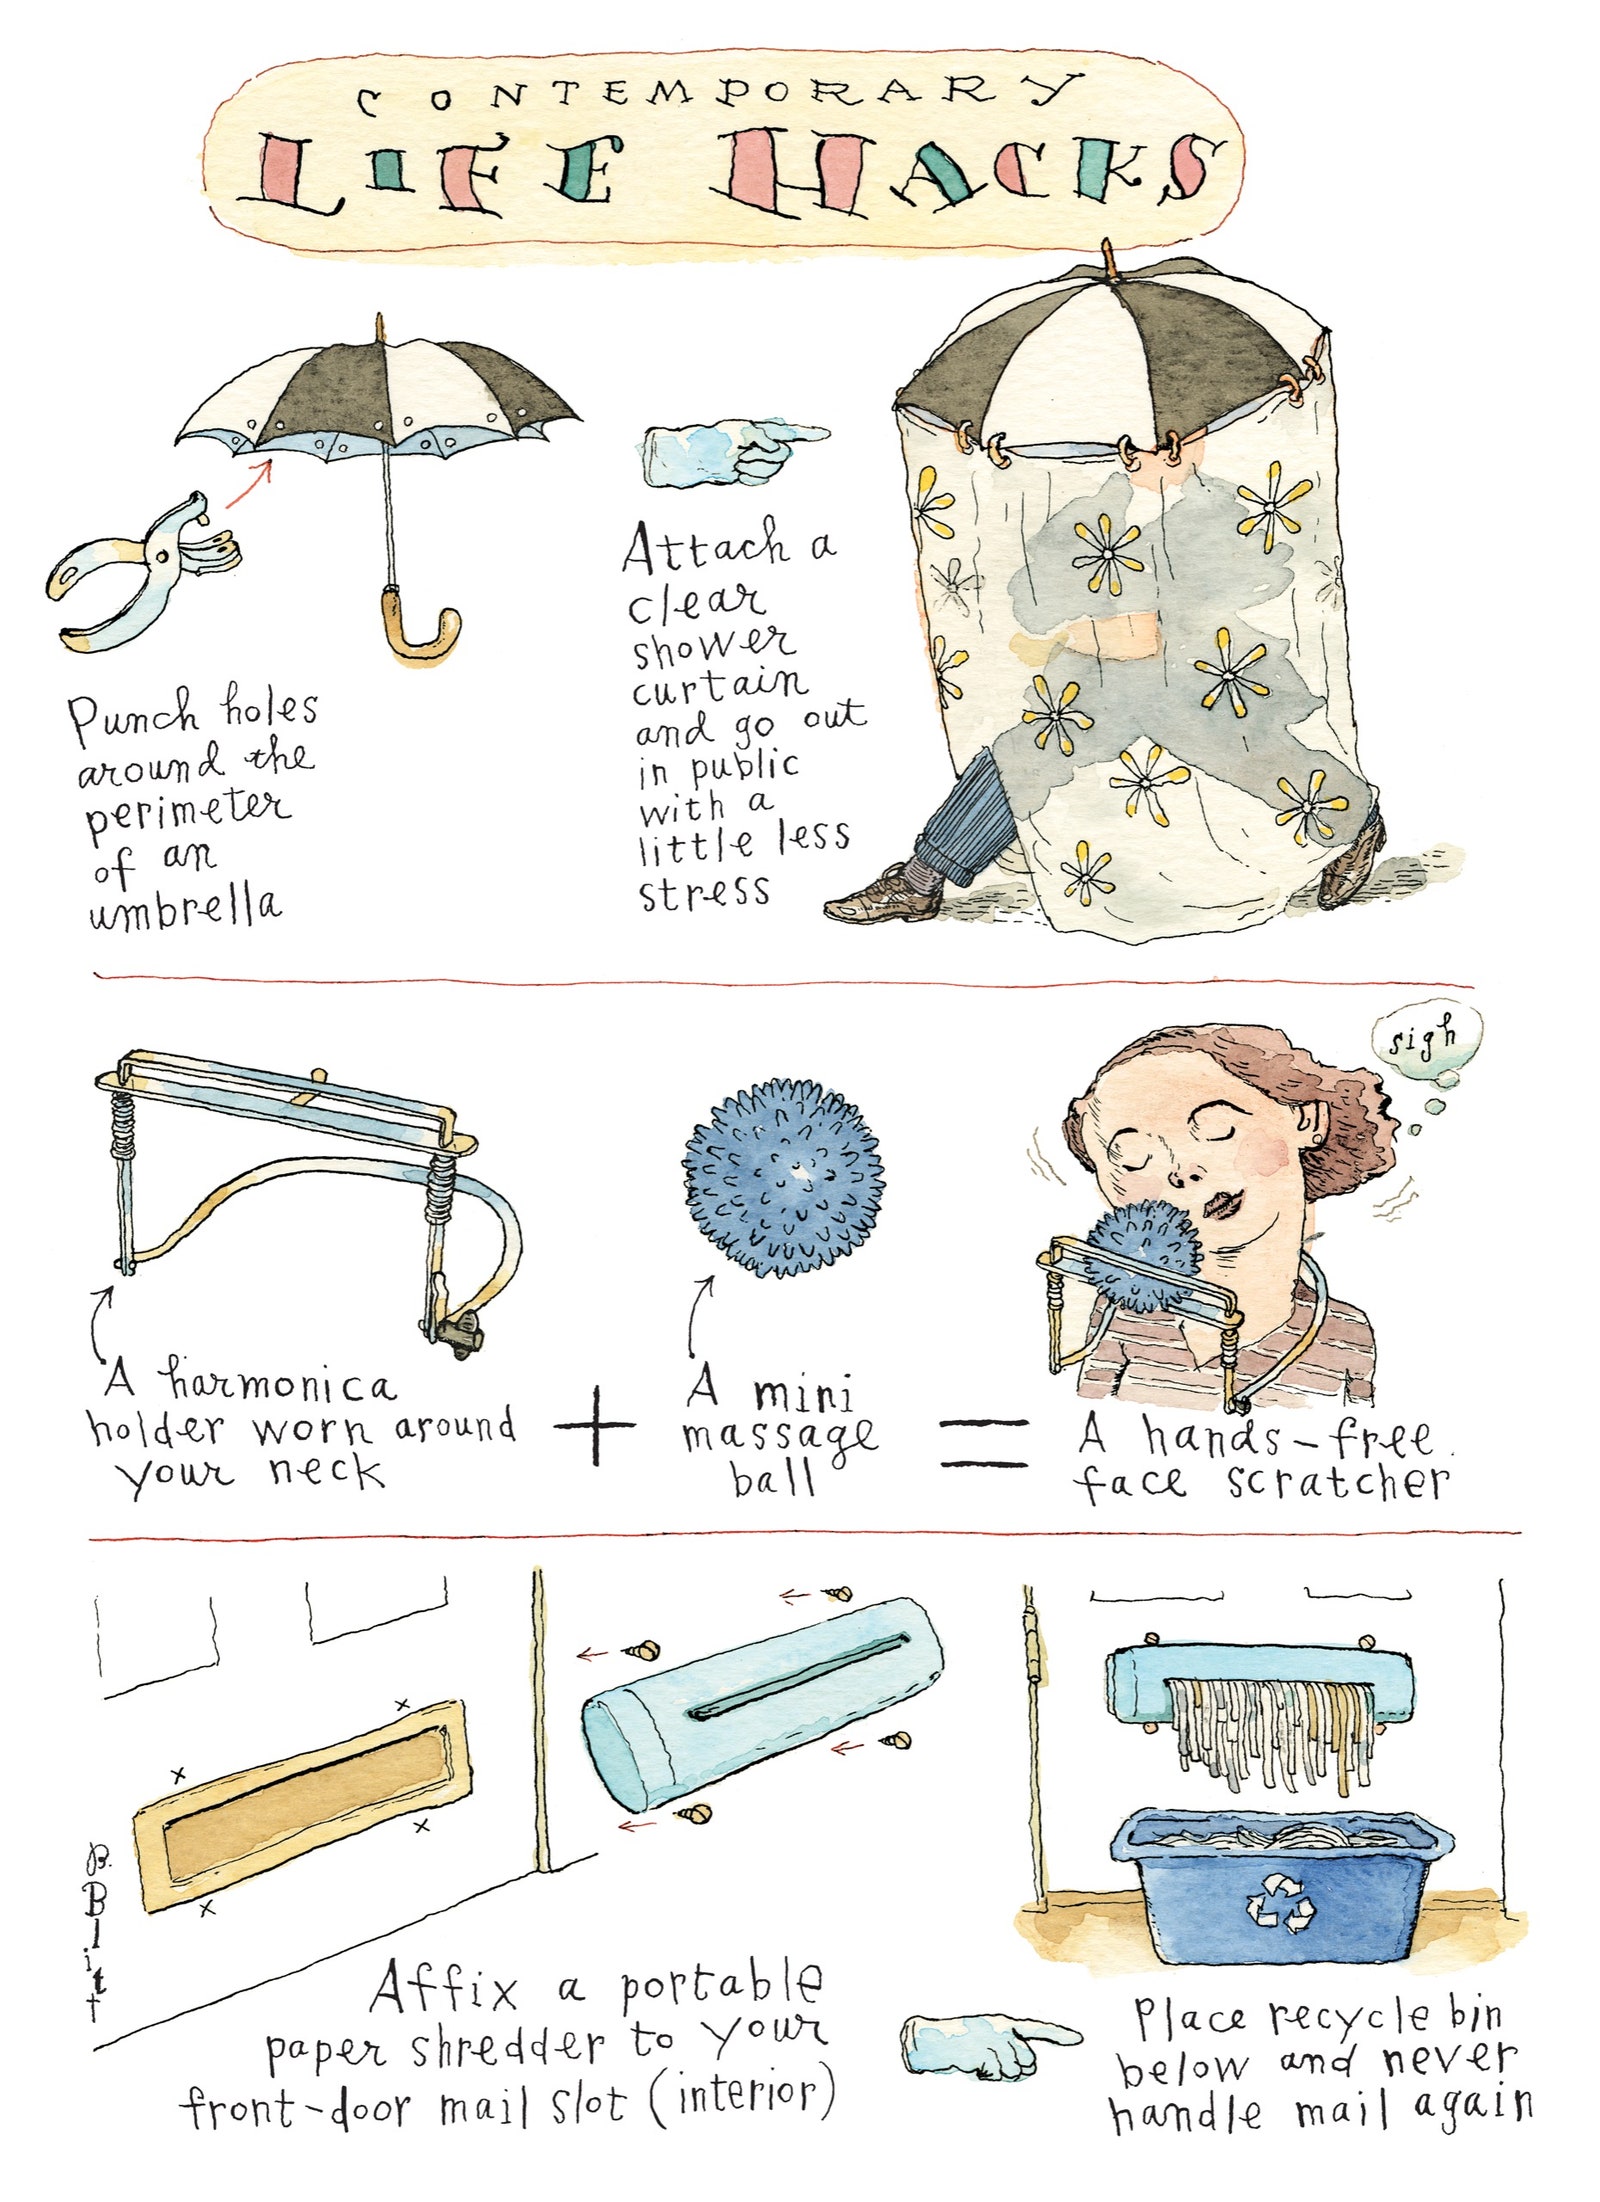 CONTEMPORARY
LIFE HACKS
Punch holes
around the
perimeter
of an
umbrella
Attach a
clear
shower
curtain
and go out
in public
with a
little less
stress
sigh
A harmonica
holder worn around
your neck
+
A mini
massage
ball
=
A hands-free
face scratcher
B. Blitt
Affix a portable
paper shredder to your
front-door mail slot (interior)
Place recycle bin
below and never
handle mail again